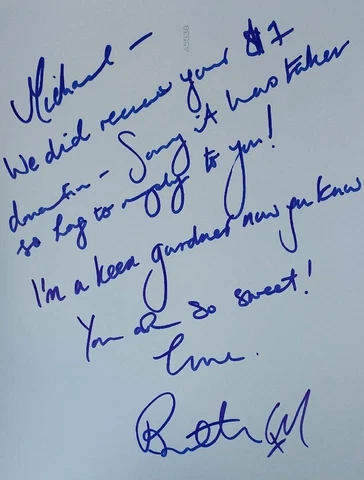 Michael -
We did receive your $1
donation - Sorry it has taken
so long to reply to you!
I'm a keen gardner now you know
You are so sweet!
Love.